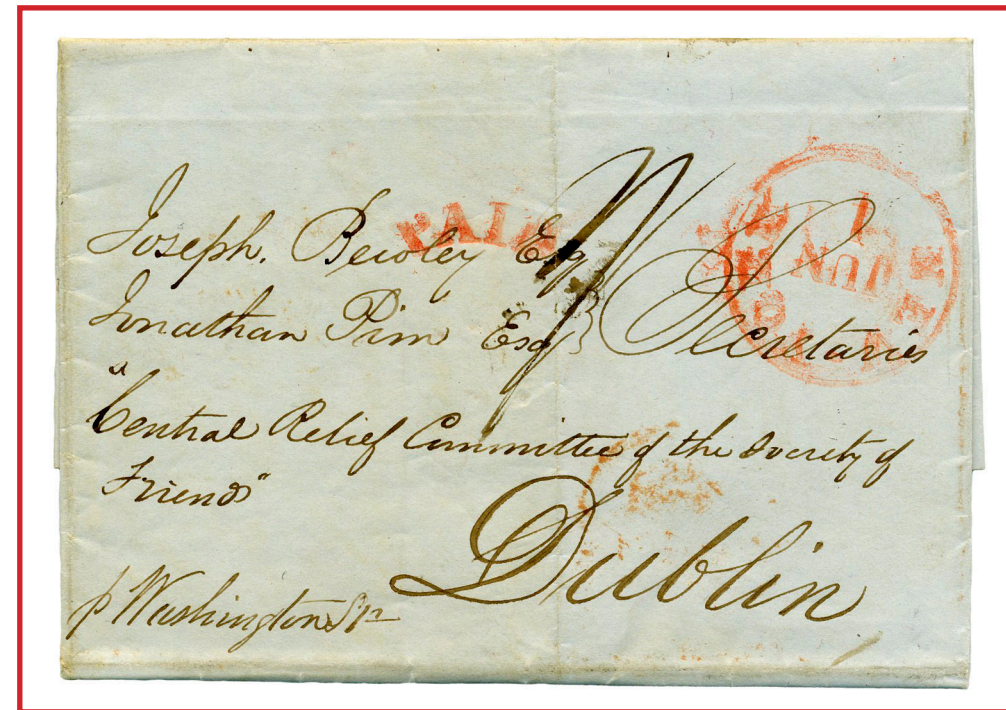 PAID
NEW YORK
1
JUN
Joseph. Bewley Esq
Jonathan Pim Esq } Secretaries
"Central Relief Committee of the Society of
Friends"
Dublin
p Washington Str